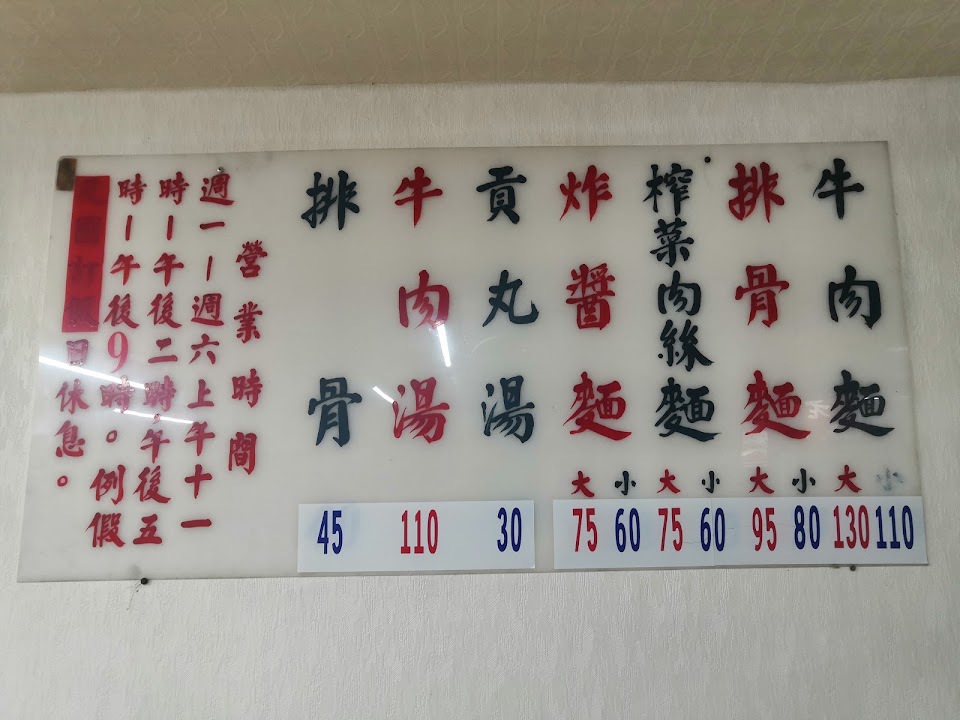 牛肉麵
大 小
130 110
排骨麵
大 小
95 80
榨菜肉絲麵
大 小
75 60
炸醬麵
大 小
75 60
貢丸湯
30
牛肉湯
110
排骨
45
營業時間
週一－週六上午十一
時－午後二時,午後五
時－午後9時。例假
日休息。